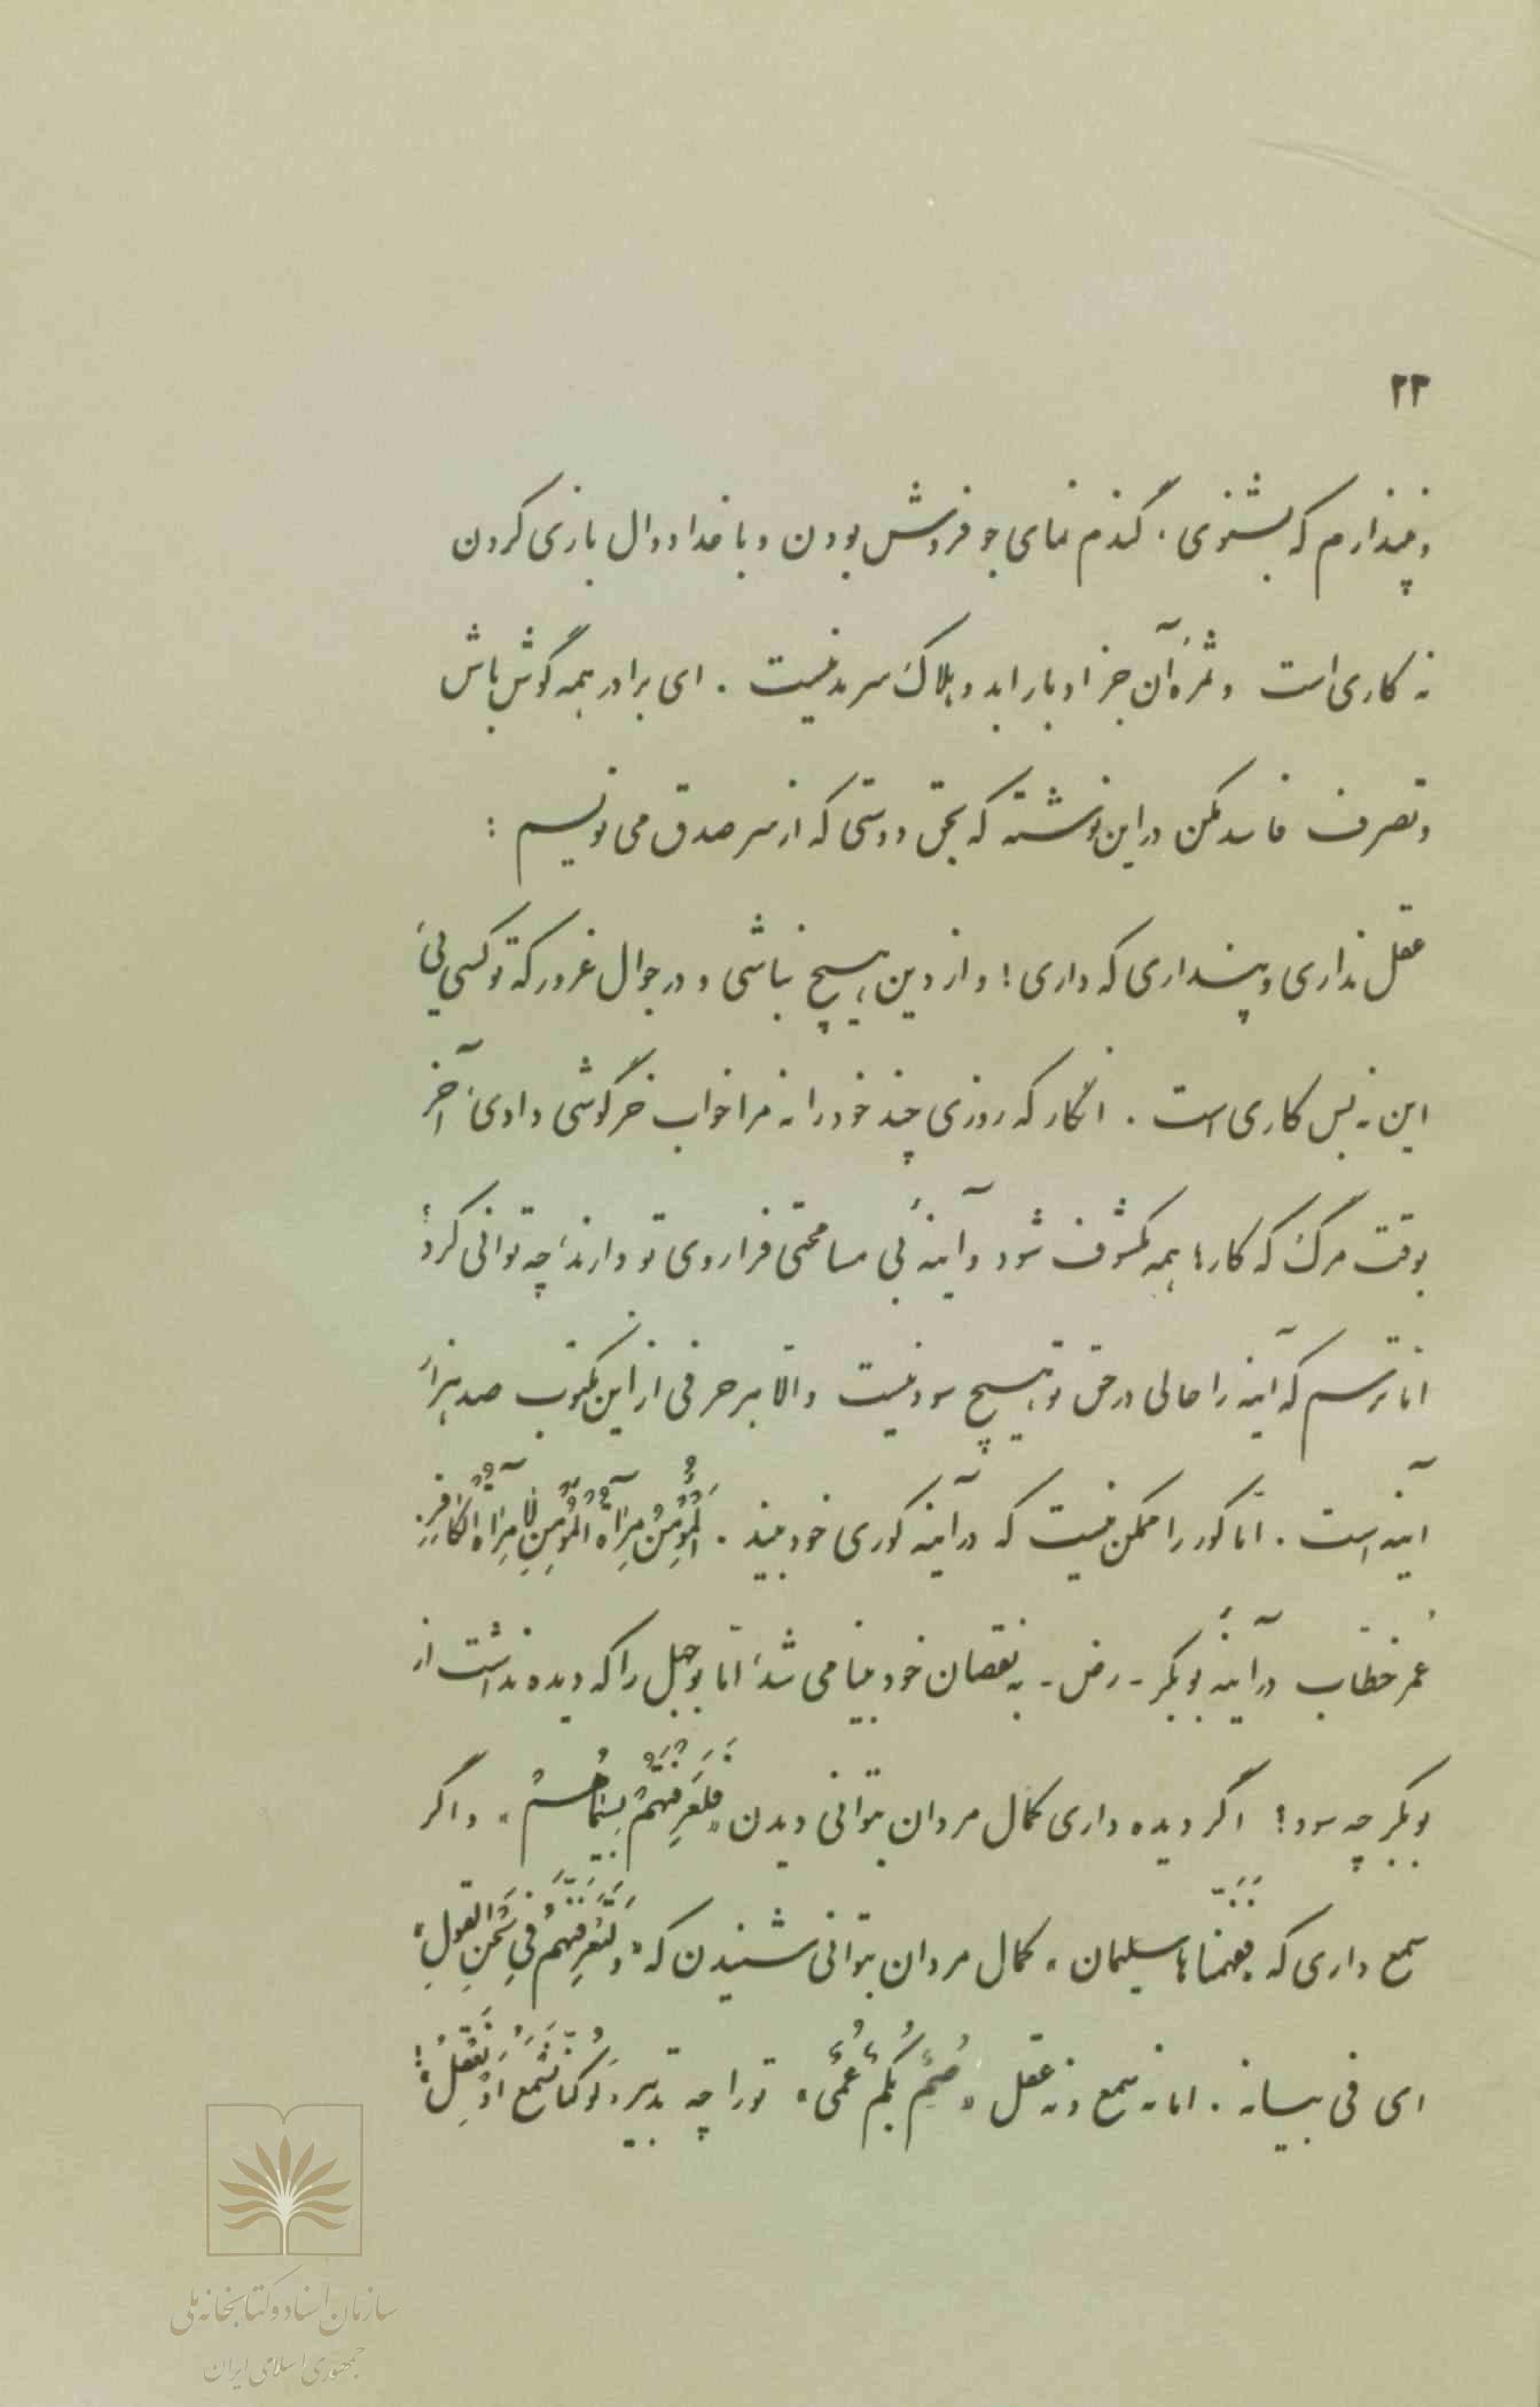 ۲۳
و نپندارم که بشنوی. گندم نمای جو فروش بودن و با خدا دوال بازی کردن
نه کاری است و ثمرهٔ آن جز ادبار ابد و هلاک سرمد نیست. ای برادر همه گوش باش
و تصرف فاسد مکن در این نوشته که بحق دوستی که از سر صدق می نویسم:
عقل نداری و پنداری که داری! و از دین هیچ نباشی و در جوال غرور که تو کسی ئی
این نه بس کاری است. انگار که روزی چند خود را نه مرا خواب خرگوشی دادی، آخر
بوقت مرگ که کارها همه مکشوف شود و آینهٔ بی مسامحتی فرا روی تو دارند، چه توانی کرد؟
اما ترسم که آینه را حالی در حق تو هیچ سود نیست و الا هر حرفی از این مکتوب صد هزار
آینه است. اما کور را ممکن نیست که در آینه کوری خود بیند. اَلْمُؤمِنُ مِرآةُ المُؤمِنِ لا مِرآةُ الکافِرِ.
عمر خطاب در آینهٔ بوبکر ـ رض ـ به نقصان خود بینا می شد، اما بوجهل را که دیده نداشت از
بوبکر چه سود؟ اگر دیده داری کمال مردان بتوانی دیدن «فَلَعَرَفتَهُم بِسیماهُم» و اگر
سمع داری که «ففهمناها سلیمان» کمال مردان بتوانی شنیدن که «وَ لَتَعرِفَنَّهُم فی لَحنِ القَولِ»
ای فی بیانه. اما نه سمع و نه عقل «صُمٌّ بُکمٌ عُمیٌ» تو را چه تدبیر «لَو کُنّا نَسمَعُ اَو نَعقِلُ»!
سازمان اسناد و کتابخانه ملی
جمهوری اسلامی ایران